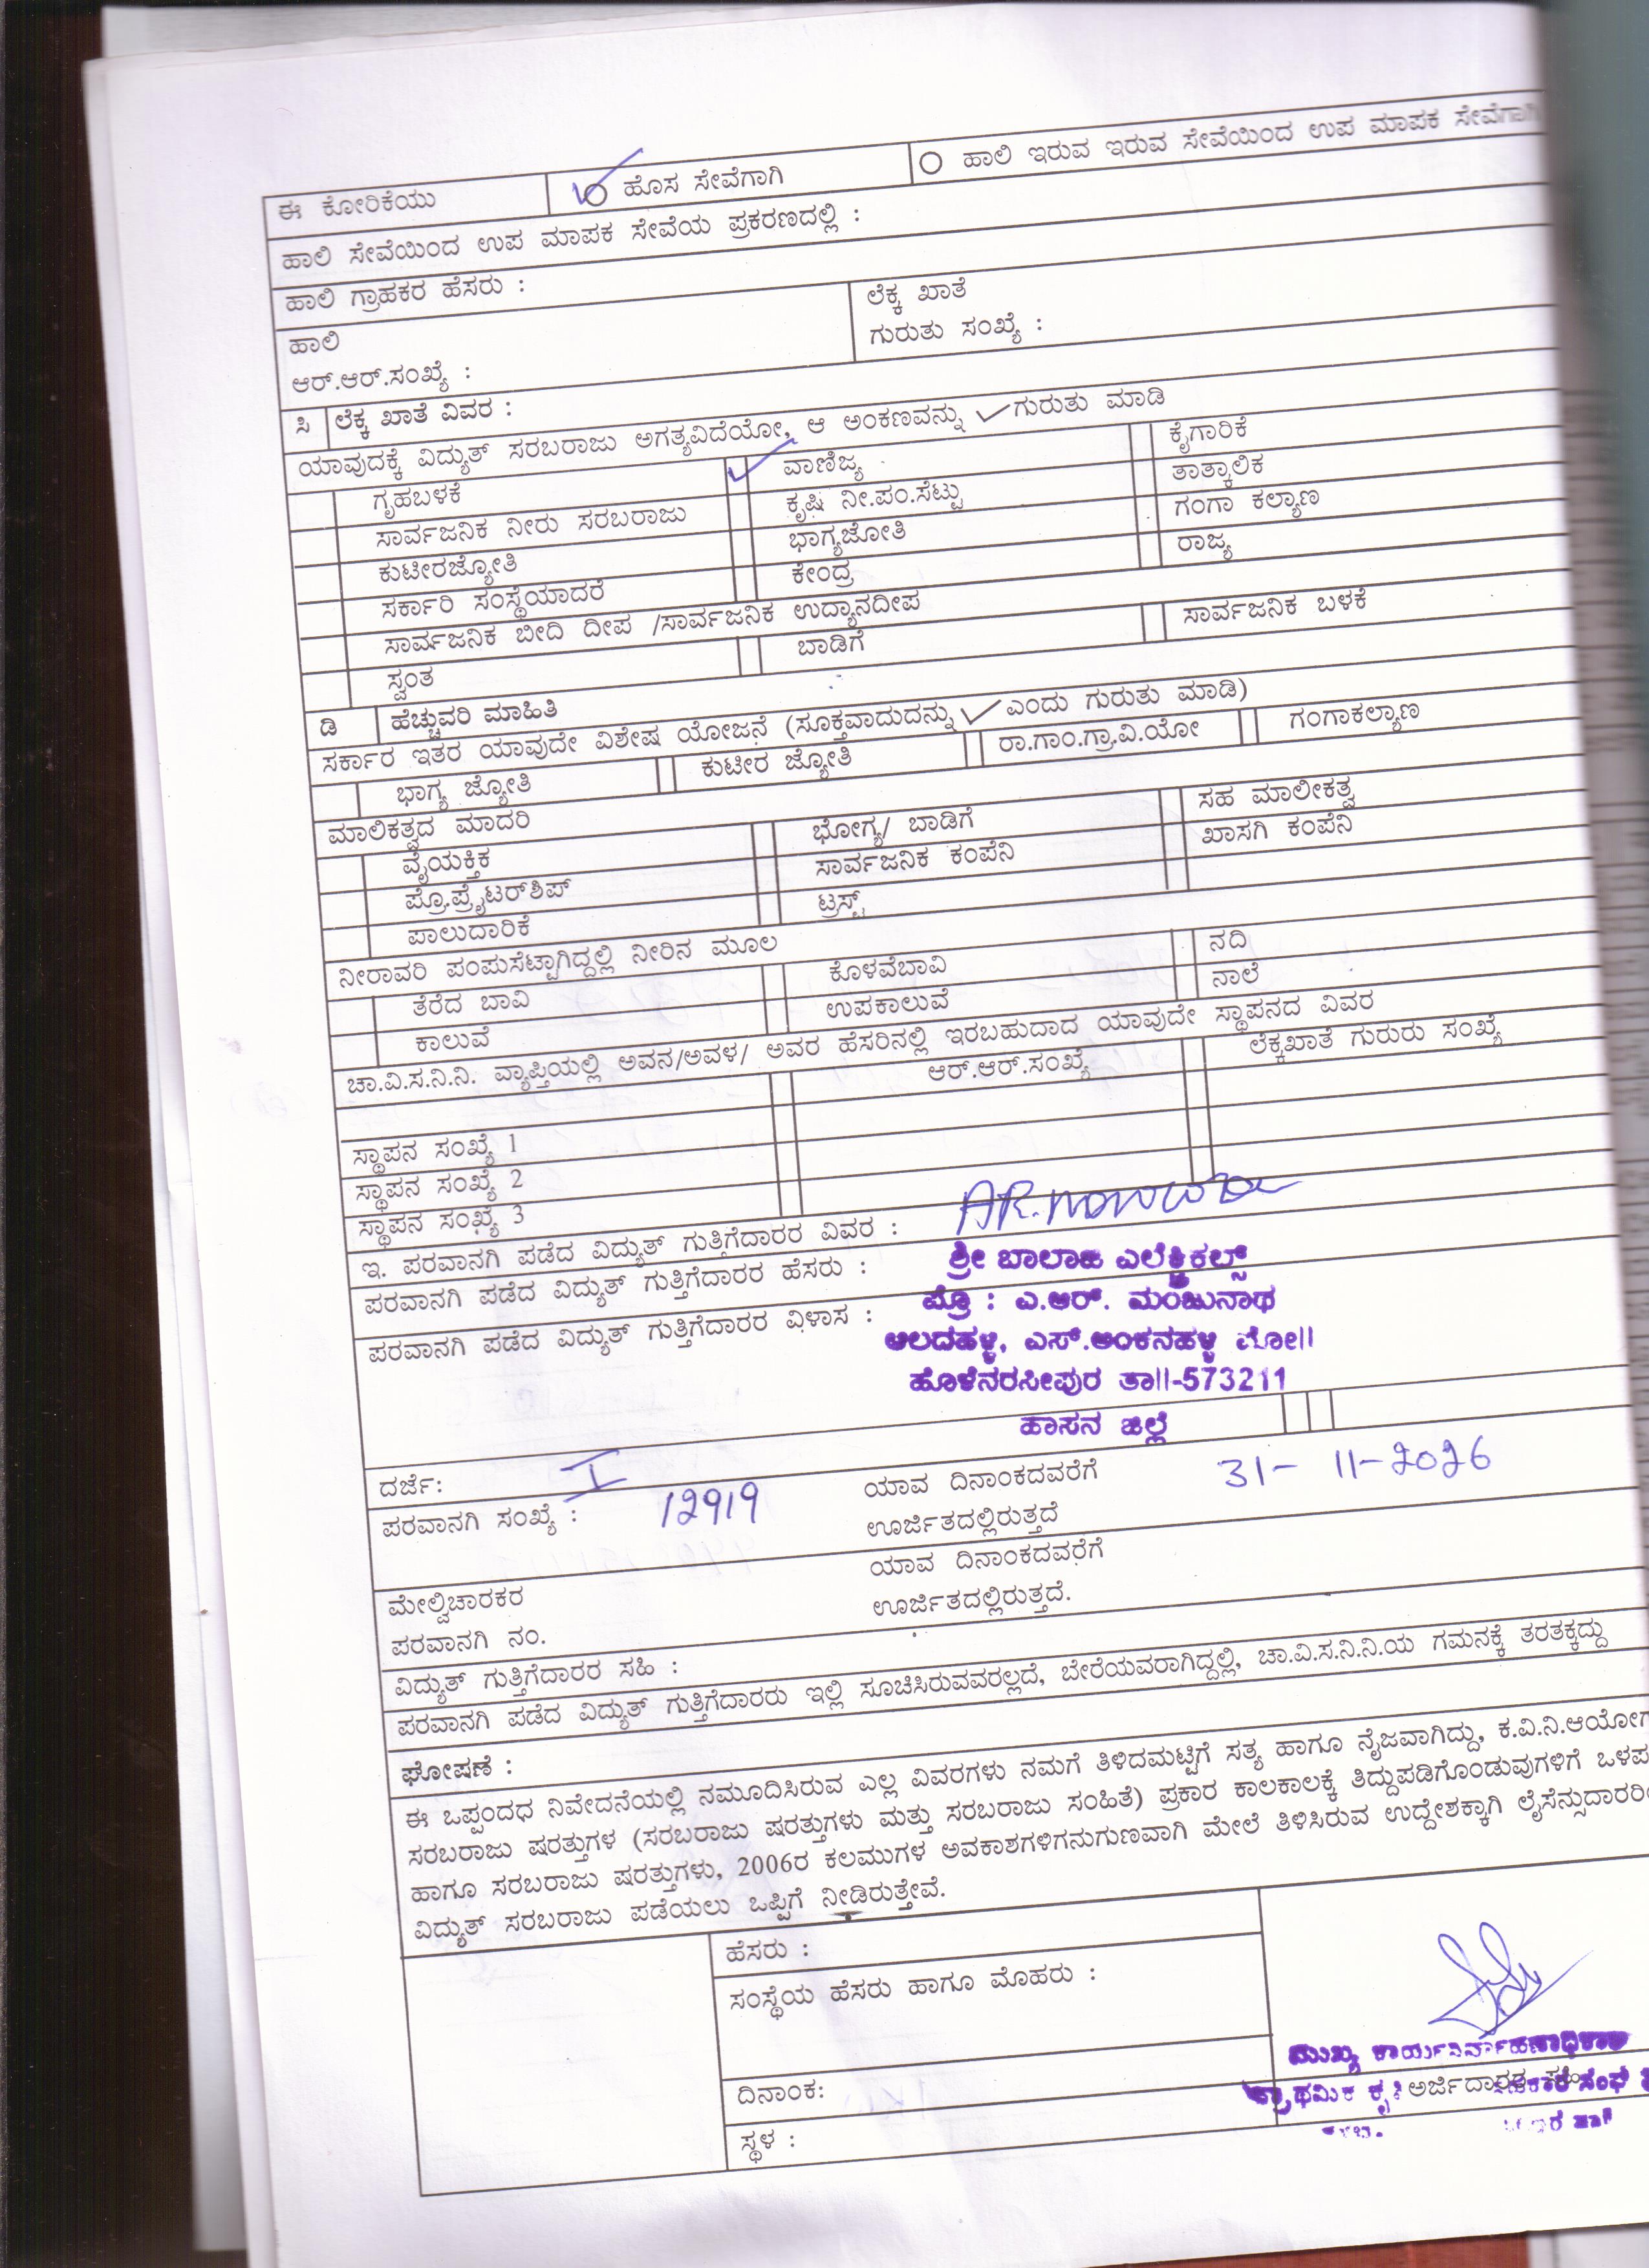 ಈ ಕೋರಿಕೆಯು ಹೊಸ ಸೇವೆಗಾಗಿ ಹಾಲಿ ಇರುವ ಇರುವ ಸೇವೆಯಿಂದ ಉಪ ಮಾಪಕ ಸೇವೆಗಾಗಿ
ಹಾಲಿ ಸೇವೆಯಿಂದ ಉಪ ಮಾಪಕ ಸೇವೆಯ ಪ್ರಕರಣದಲ್ಲಿ :
ಹಾಲಿ ಗ್ರಾಹಕರ ಹೆಸರು :
ಹಾಲಿ
ಆರ್.ಆರ್.ಸಂಖ್ಯೆ :
ಲೆಕ್ಕ ಖಾತೆ
ಗುರುತು ಸಂಖ್ಯೆ :
ಸಿ ಲೆಕ್ಕ ಖಾತೆ ವಿವರ :
ಯಾವುದಕ್ಕೆ ವಿದ್ಯುತ್ ಸರಬರಾಜು ಅಗತ್ಯವಿದೆಯೋ, ಆ ಅಂಕಣವನ್ನು ✓ ಗುರುತು ಮಾಡಿ
ಗೃಹಬಳಕೆ ✓ ವಾಣಿಜ್ಯ ಕೈಗಾರಿಕೆ
ಸಾರ್ವಜನಿಕ ನೀರು ಸರಬರಾಜು ಕೃಷಿ ನೀ.ಪಂ.ಸೆಟ್ಟು ತಾತ್ಕಾಲಿಕ
ಕುಟೀರಜ್ಯೋತಿ ಭಾಗ್ಯಜೋತಿ ಗಂಗಾ ಕಲ್ಯಾಣ
ಸರ್ಕಾರಿ ಸಂಸ್ಥೆಯಾದರೆ ಕೇಂದ್ರ ರಾಜ್ಯ
ಸಾರ್ವಜನಿಕ ಬೀದಿ ದೀಪ /ಸಾರ್ವಜನಿಕ ಉದ್ಯಾನದೀಪ
ಸ್ವಂತ ಬಾಡಿಗೆ ಸಾರ್ವಜನಿಕ ಬಳಕೆ
ಡಿ ಹೆಚ್ಚುವರಿ ಮಾಹಿತಿ
ಸರ್ಕಾರ ಇತರ ಯಾವುದೇ ವಿಶೇಷ ಯೋಜನೆ (ಸೂಕ್ತವಾದುದನ್ನು ✓ ಎಂದು ಗುರುತು ಮಾಡಿ)
ಭಾಗ್ಯ ಜ್ಯೋತಿ ಕುಟೀರ ಜ್ಯೋತಿ ರಾ.ಗಾಂ.ಗ್ರಾ.ವಿ.ಯೋ ಗಂಗಾಕಲ್ಯಾಣ
ಮಾಲಿಕತ್ವದ ಮಾದರಿ
ವೈಯಕ್ತಿಕ ಭೋಗ್ಯ/ ಬಾಡಿಗೆ ಸಹ ಮಾಲೀಕತ್ವ
ಪ್ರೊಪ್ರೈಟರ್‌ಶಿಪ್ ಸಾರ್ವಜನಿಕ ಕಂಪೆನಿ ಖಾಸಗಿ ಕಂಪೆನಿ
ಪಾಲುದಾರಿಕೆ ಟ್ರಸ್ಟ್
ನೀರಾವರಿ ಪಂಪುಸೆಟ್ಟಾಗಿದ್ದಲ್ಲಿ ನೀರಿನ ಮೂಲ
ತೆರೆದ ಬಾವಿ ಕೊಳವೆಬಾವಿ ನದಿ
ಕಾಲುವೆ ಉಪಕಾಲುವೆ ನಾಲೆ
ಚಾ.ವಿ.ಸ.ನಿ.ನಿ. ವ್ಯಾಪ್ತಿಯಲ್ಲಿ ಅವನ/ಅವಳ/ ಅವರ ಹೆಸರಿನಲ್ಲಿ ಇರಬಹುದಾದ ಯಾವುದೇ ಸ್ಥಾಪನದ ವಿವರ
ಆರ್.ಆರ್.ಸಂಖ್ಯೆ ಲೆಕ್ಕಖಾತೆ ಗುರುರು ಸಂಖ್ಯೆ
ಸ್ಥಾಪನ ಸಂಖ್ಯೆ 1
ಸ್ಥಾಪನ ಸಂಖ್ಯೆ 2
ಸ್ಥಾಪನ ಸಂಖ್ಯೆ 3
ಇ. ಪರವಾನಗಿ ಪಡೆದ ವಿದ್ಯುತ್ ಗುತ್ತಿಗೆದಾರರ ವಿವರ :
ಪರವಾನಗಿ ಪಡೆದ ವಿದ್ಯುತ್ ಗುತ್ತಿಗೆದಾರರ ಹೆಸರು :
ಪರವಾನಗಿ ಪಡೆದ ವಿದ್ಯುತ್ ಗುತ್ತಿಗೆದಾರರ ವಿಳಾಸ :
ಶ್ರೀ ಬಾಲಾಜಿ ಎಲೆಕ್ಟ್ರಿಕಲ್ಸ್
ಪ್ರೊ : ಎ.ಆರ್. ಮಂಜುನಾಥ
ಆಲದಹಳ್ಳಿ, ಎಸ್.ಅಂಕನಹಳ್ಳಿ ಪೋ||
ಹೊಳೆನರಸೀಪುರ ತಾ||-573211
ಹಾಸನ ಜಿಲ್ಲೆ
ದರ್ಜೆ: I
ಪರವಾನಗಿ ಸಂಖ್ಯೆ : 12919 ಯಾವ ದಿನಾಂಕದವರೆಗೆ 31- 11-2026
ಊರ್ಜಿತದಲ್ಲಿರುತ್ತದೆ
ಮೇಲ್ವಿಚಾರಕರ ಯಾವ ದಿನಾಂಕದವರೆಗೆ
ಪರವಾನಗಿ ನಂ. ಊರ್ಜಿತದಲ್ಲಿರುತ್ತದೆ.
ವಿದ್ಯುತ್ ಗುತ್ತಿಗೆದಾರರ ಸಹಿ :
ಪರವಾನಗಿ ಪಡೆದ ವಿದ್ಯುತ್ ಗುತ್ತಿಗೆದಾರರು ಇಲ್ಲಿ ಸೂಚಿಸಿರುವವರಲ್ಲದೆ, ಬೇರೆಯವರಾಗಿದ್ದಲ್ಲಿ, ಚಾ.ವಿ.ಸ.ನಿ.ನಿ.ಯ ಗಮನಕ್ಕೆ ತರತಕ್ಕದ್ದು
ಘೋಷಣೆ :
ಈ ಒಪ್ಪಂದಧ ನಿವೇದನೆಯಲ್ಲಿ ನಮೂದಿಸಿರುವ ಎಲ್ಲ ವಿವರಗಳು ನಮಗೆ ತಿಳಿದಮಟ್ಟಿಗೆ ಸತ್ಯ ಹಾಗೂ ನೈಜವಾಗಿದ್ದು, ಕ.ವಿ.ನಿ.ಆಯೋಗ
ಸರಬರಾಜು ಷರತ್ತುಗಳ (ಸರಬರಾಜು ಷರತ್ತುಗಳು ಮತ್ತು ಸರಬರಾಜು ಸಂಹಿತೆ) ಪ್ರಕಾರ ಕಾಲಕಾಲಕ್ಕೆ ತಿದ್ದುಪಡಿಗೊಂಡುವುಗಳಿಗೆ ಒಳಪ
ಹಾಗೂ ಸರಬರಾಜು ಷರತ್ತುಗಳು, 2006ರ ಕಲಮುಗಳ ಅವಕಾಶಗಳಿಗನುಗುಣವಾಗಿ ಮೇಲೆ ತಿಳಿಸಿರುವ ಉದ್ದೇಶಕ್ಕಾಗಿ ಲೈಸೆನ್ಸುದಾರರಿ
ವಿದ್ಯುತ್ ಸರಬರಾಜು ಪಡೆಯಲು ಒಪ್ಪಿಗೆ ನೀಡಿರುತ್ತೇವೆ.
ಹೆಸರು :
ಸಂಸ್ಥೆಯ ಹೆಸರು ಹಾಗೂ ಮೊಹರು :
ಮುಖ್ಯ ಕಾರ್ಯನಿರ್ವಾಹಣಾಧಿಕಾರಿ
ದಿನಾಂಕ:
ಪ್ರಾಥಮಿಕ ಕೃಷಿ ಸಹಕಾರ ಸಂಘ
ಅರ್ಜಿದಾರರ ಸಹಿ
ಸ್ಥಳ :